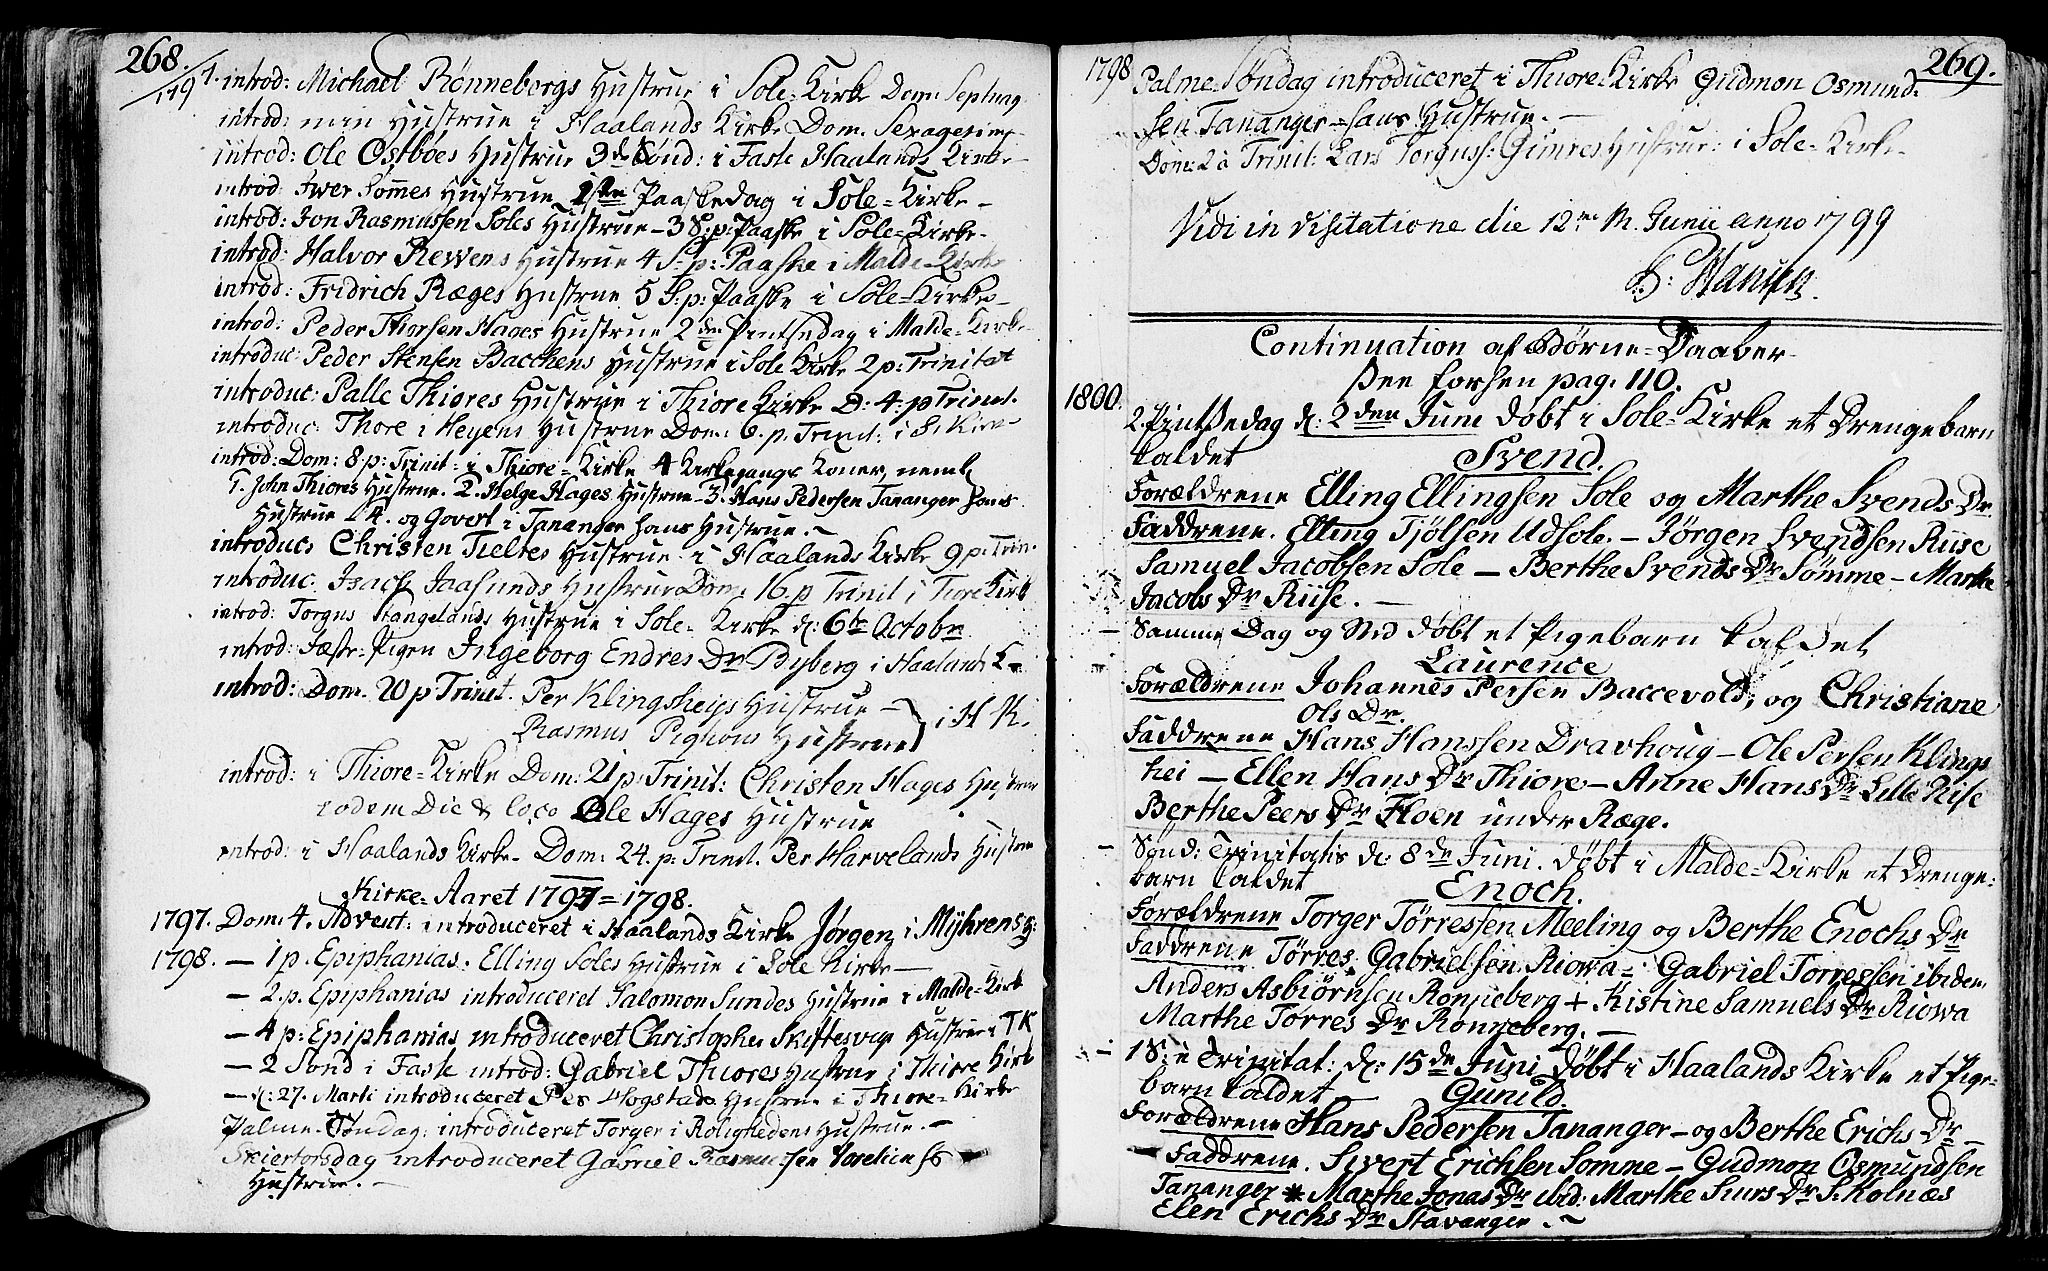 268.
1797. introd: Michael Rønneborgs Hustrue i Sole-Kirke Dom: Septuag
introd: min Hustrue i Haalands Kirke Dom. Sexagesimæ
introd: Ole Ostbøes Hustrue 3de Sønd: i Faste Haalands Kirke
introd: Iwer Sømmes Hustrue 1ste Paaskedag i Sole-Kirke-
introd: Jon Rasmussen Soles Hustrue - 3 S: p: Paaske i Sole-Kirke-
introd: Halvor Rewens Hustrue 4 S: p: Paaske i Malde-Kirke
introd: Fridrich Ræges Hustrue 5 S: p: Paaske i Sole-Kirke-
introd: Peder Thorsen Hages Hustrue 2den Pintsedag i Malde-Kirke
introduc: Peder Stensen Bacchens Hustrue i Sole Kirke 2 p: Trinitat
introduc: Palle Thiores Hustrue i Thiore Kirke D: 4: p Trinit.
introduc: Thore i Heyens Hustrue Dom: 6. p. Trinit: i S. Kirke-
introd: Dom: 8. p: Trinit: i Thiore-Kirke 4 Kirkegangs Koner, neml
1. John Thiores Hustrue. 2. Helge Hages Hustrue - 3. Hans Pedersen Tananger hans
Hustrue - 4. og Govert i Tananger hans Hustrue. -
introduc: Christen Tieltes Hustrue i Haalands Kirke 9 p: Trin.
introduc. Isach Jaasunds Hustrue Dom: 16. p Trinit i Tiore Kirke
introd: Torgus Stangelands Hustrue i Sole-Kirke d: 6te Octobr
introd: Fæste-Pigen Ingeborg Endres Dr Byberg i Haalands K-
introd: Dom. 20 p Trinit. Per Klingsheijs Hustrue -
Rasmus Hustrue } i H K.
introd: i Thiore-Kirke Dom: 21 p: Trinit: Christen Hages Hustrue
eodem Die & loco Ole Hages Hustrue
introd: i Haalands Kirke- Dom: 24. p: Trinit. Per Harvelands Hustrue
Kirke-Aaret 1797=1798.
1797. Dom: 4. Advent: introduceret i Haalands Kirke Jørgen i Myhrens H:
1798. - 1 p. Epiphanias. Elling Soles Hustrue i Sole Kirke -
- 2. p. Epiphanias introduceret Salomon Sundes Hustrue i Malde-Kirke
- 4 p: Epiphanias introduceret Christopher Skiftesvigs Hustrue i T K
- 2 Sønd i Faste introd: Gabriel Thiores Hustrue i Thiore Kirke
- d: 27. Marti introduceret Per Hogstads Hustrue i Thiore-Kirke
Palme-Søndag: introduceret Torger i Rolighedens Hustrue. -
Skiertorsdag introduceret Gabriel Rasmussen
Hustrue. -
269.
1798 Palme-Søndag introduceret i Thiore-Kirke Gudmon Osmund-
sen Tananger - hans Hustrue. -
Dom: 2 à Trinit: Lars Torguss: Gimres Hustrue: i Sole-Kirke-
Vidi in Visitatione die 12me M. Junii anno 1799
Hansen.
Continuation af Børne-Daaber
See forhen pag. 110.
1800.
2. Pintsedag d: 2den Juni døbt i Sole-Kirke et Drengebarn
kaldet Svend.
Forældrene Elling Ellingsen Sole og Marthe Svends Dr
Faddrene. Elling Tjølsen Udsole. - Jørgen Svendsen Riise
Samuel Jacobsen Sole - Berthe Svends Dr Sømme - Marthe
Jacobs Dr Riise. -
- Samme Dag og Sted døbt et Pigebarn kaldet
Laurence
Forældrene Johannes Persen Baccevold, og Christiane
Ols Dr.
Faddrene Hans Hanssen Dravhoug - Ole Persen Klings
hei - Ellen Hans Dr Thiore - Anne Hans Dr Lille Riise
Berthe Peers Dr Floen under Ræge.
- Sønd: Trinitatis d: 8de Juni. døbt i Malde-Kirke et Drenge-
barn kaldet Enoch.
Forældrene Torger Tørressen Meeling og Berthe Enochs Dr
Faddrene Tørres Gabrielsen Riowa - Gabriel Torressen ibidem
Anders Asbiørnsen Rønneberg + Kistine Samuels Dr Riowa
Marthe Torres Dr Rønneberg. -
- 1 S: e Trinitat: d: 15de Juni døbt i Haalands Kirke et Pige-
barn kaldet Gunild
Forældrene Hans Pedersen Tananger - og Berthe Erichs Dr -
- Faddrene. Sivert Erichsen Somme - Gudmon Osmundsen
Tananger * Marthe Jonas Dr ibid: Marthe Siurs Dr S: Kolnæs
Elen Erichs Dr Stavanger. ~